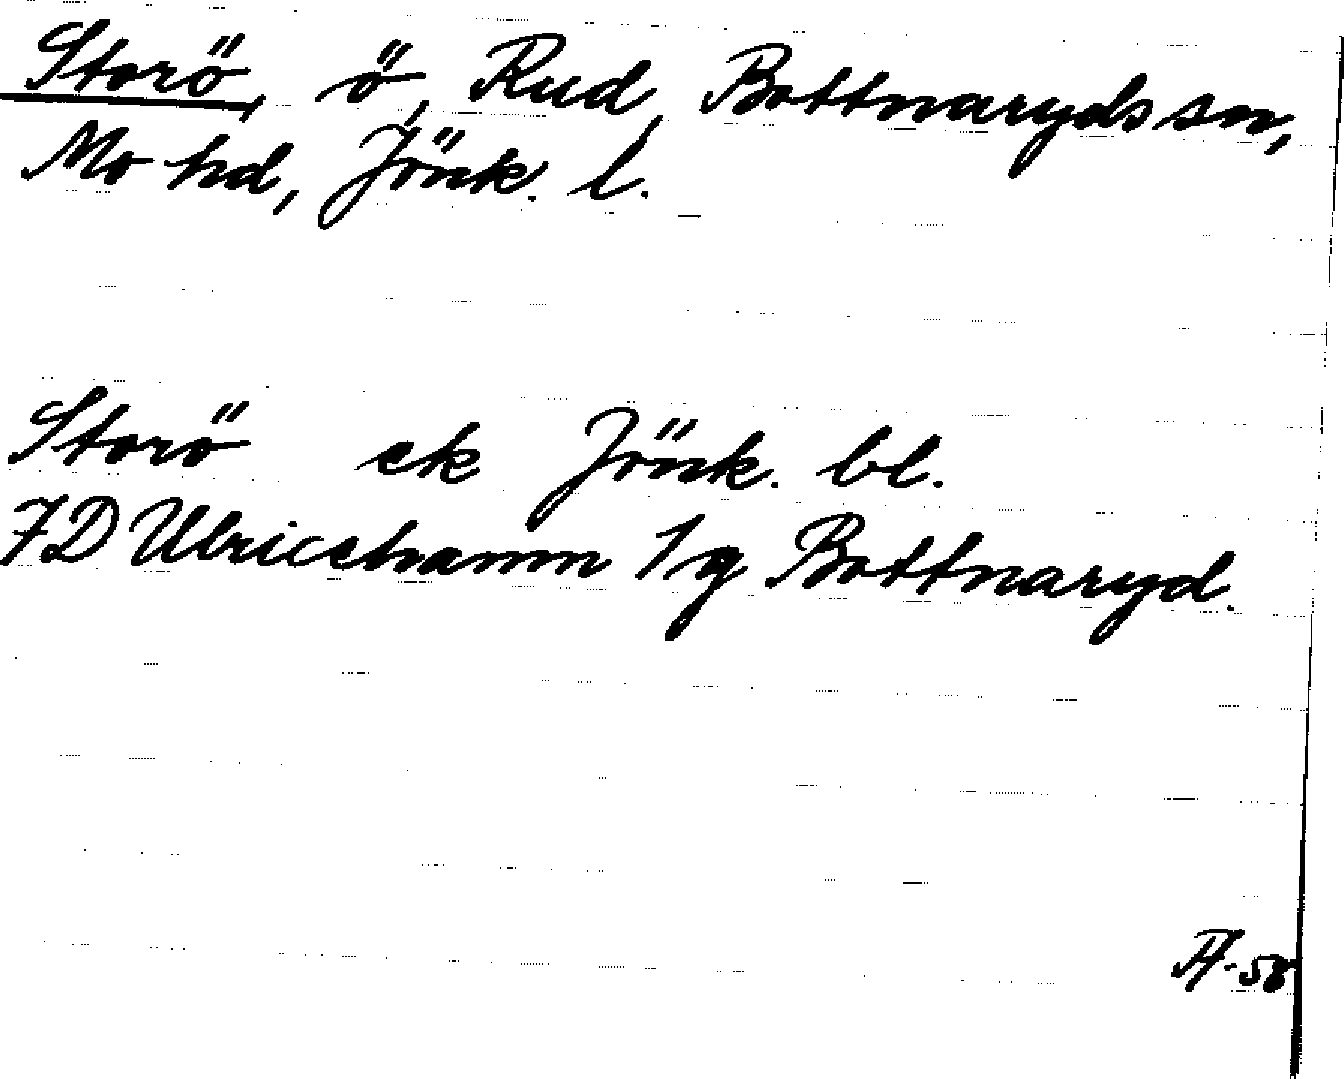 Storö, ö, Rud, Bottnaryds sn,
Mo hd, Jönk. l.
Storö ek Jönk. bl.
7D Ulricehamn 1g Bottnaryd.